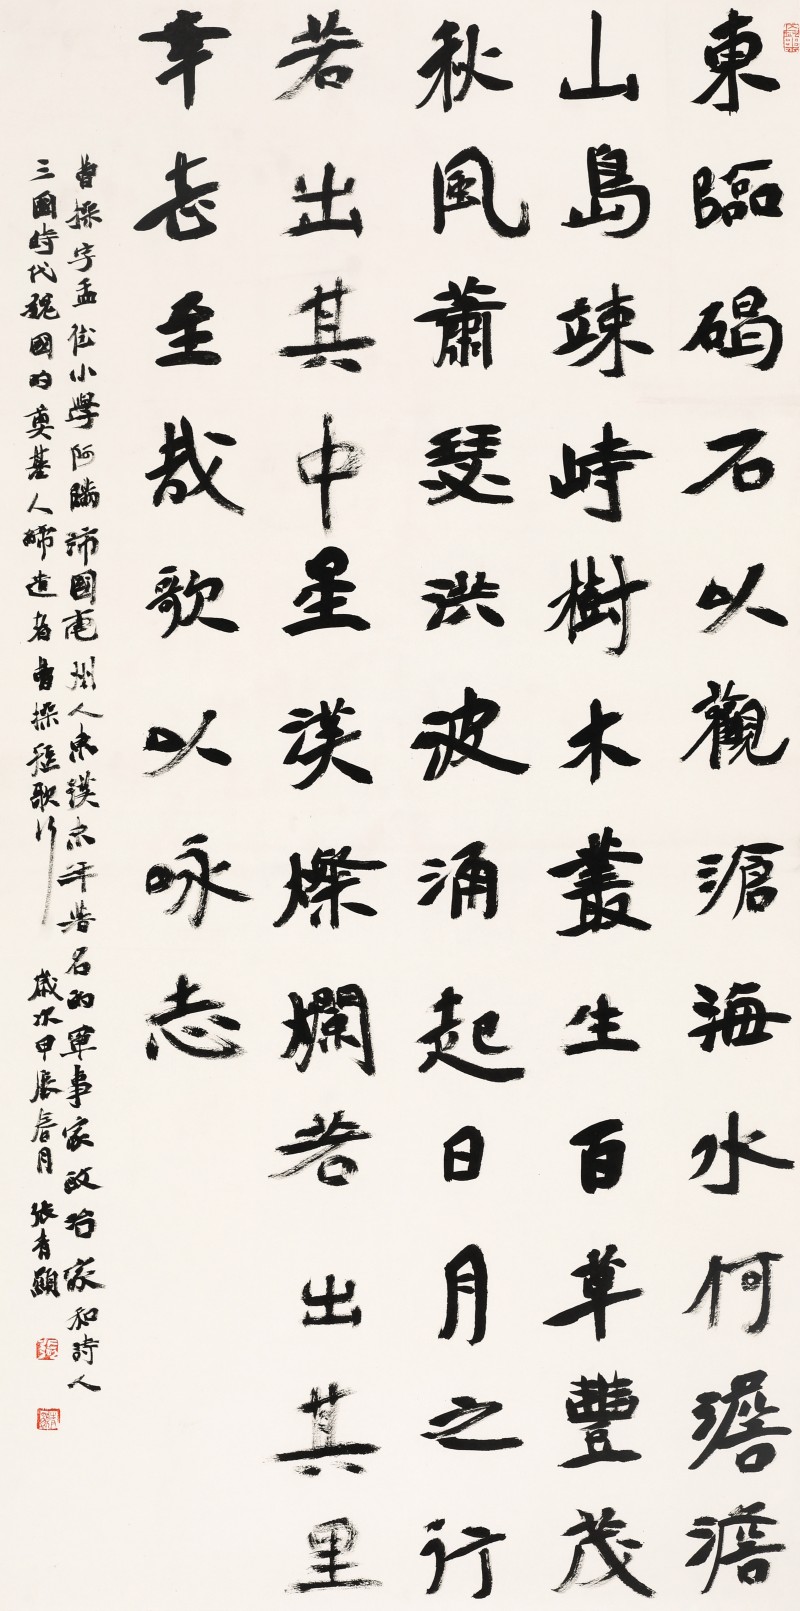 東臨碣石以觀滄海水何澹澹
山島竦峙樹木叢生百草豐茂
秋風蕭瑟洪波涌起日月之行
若出其中星漢燦爛若出其里
幸甚至哉歌以咏志
曹操字孟德小學阿瞞沛國亳州人東漢末年著名的軍事家政治家和詩人
三國時代魏國的奠基人締造者曹操短歌行 歲次甲辰春月 張